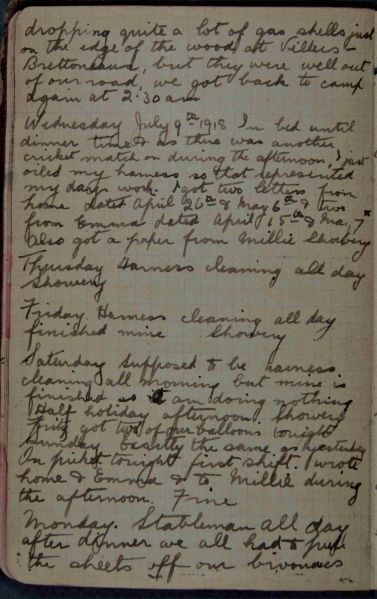 dropping quite a lot of gas shells just
on the edge of the wood at Villers-
Brettoneaux, but they were well out
of our road, we got back to camp
again at 2.30 am
Wednesday July 9th 1918 In bed until
dinner time & as there was another
cricket match on during the afternoon, I just
oiled my harness so that represented
my days work. I got two letters from
home dated April 26th & May 6th & two
from Emma dated April & May 7th
Also got a paper from Millie Showery
Thursday Harness cleaning all day
Showery
Friday Harness cleaning all day
finished mine Showery
Saturday Supposed to be harness
cleaning all morning but mine is
finished so I am doing nothing
Half holiday afternoon. Showery
Fritz got two of our balloons tonight
Sunday Exactly the same as yesterday
On picket tonight first shift. wrote
home & Emma & to Millie during
the afternoon. Fine
Monday. Stableman all day
after dinner we all had to pull
the sheets off our bivouacs